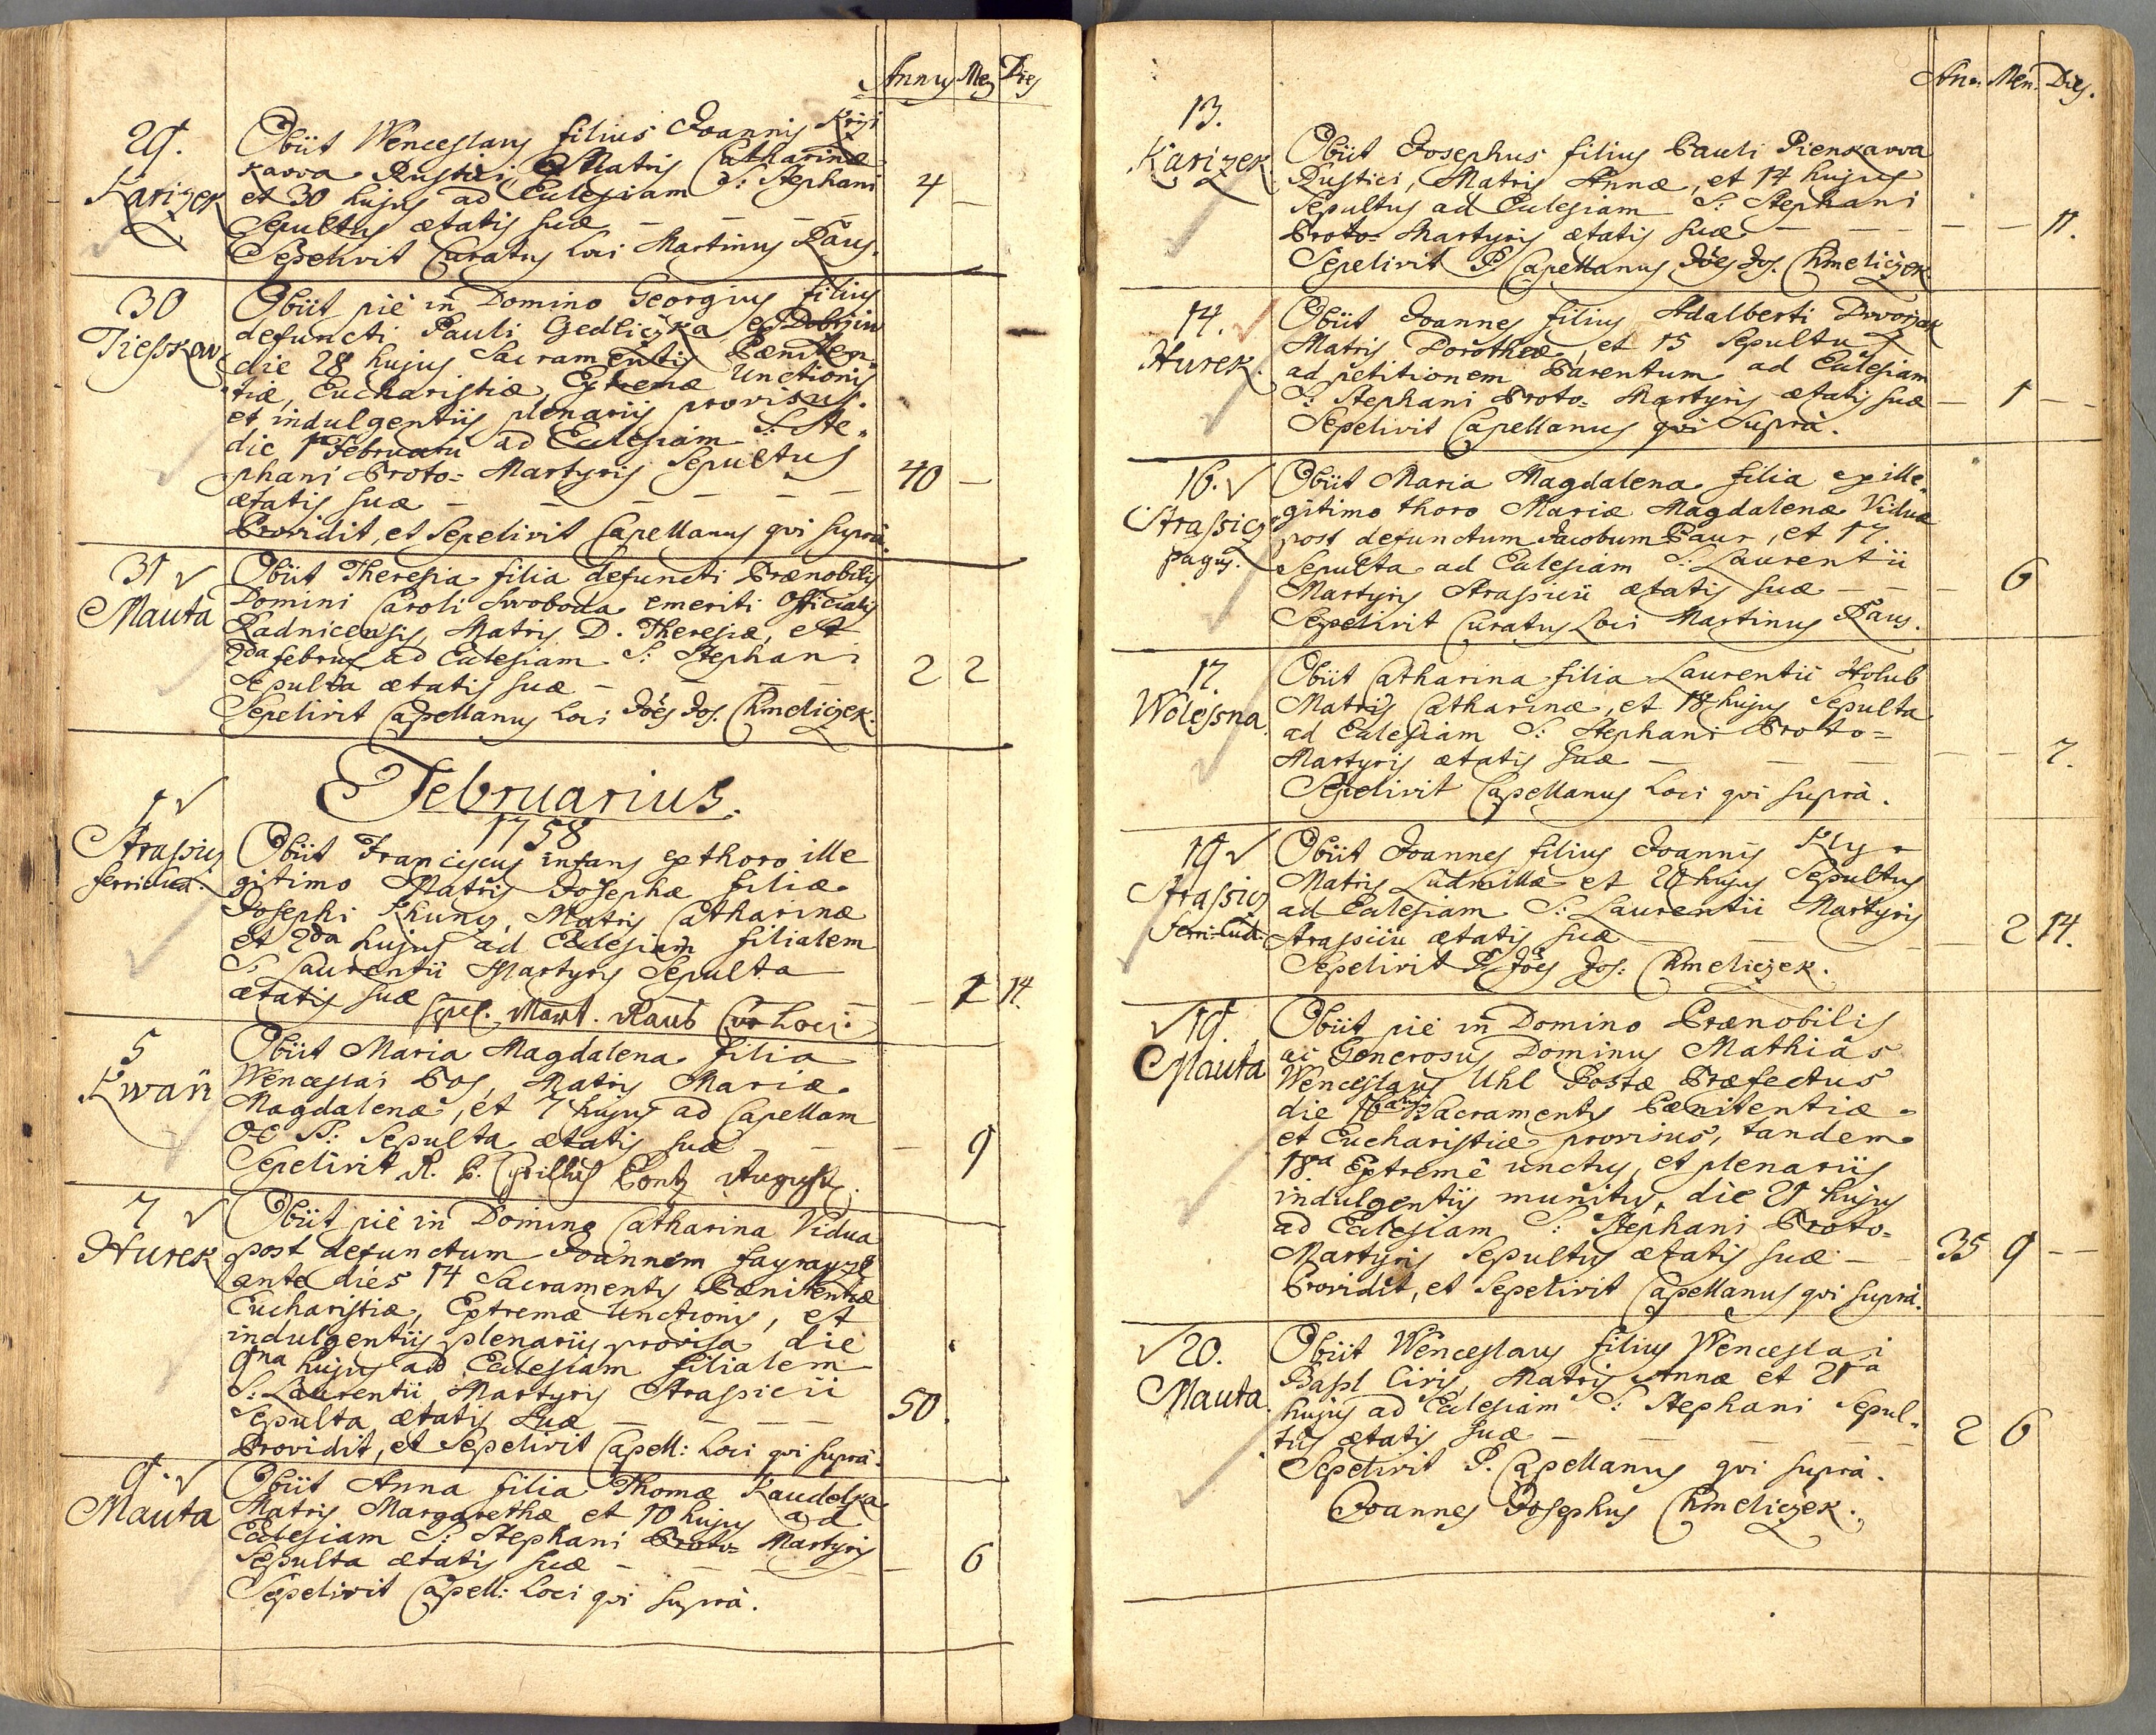 Annus Mes Dies
29.
Karizek
Obiit Wenceslaus filius Joannis Krzi
kawa Rustici, et Matris Catharinæ
et 30 hujus ad Eclesiam S: Stephani
Sepultus ætatis suæ — — — 4 —
Sepelivit Curatus Loci Martinus Raus.
30
Tiesskow
Obiit piè in Domino Georgius filius
defuncti Pauli Gedliczka ex Dobrziw
die 28 hujus Sacramentis Pæniten-
tiæ, Eucharistiæ, Extremæ Unctionis
et indulgentiis plenariis provisus.
die 1ma Februarii ad Eclesiam S: Ste-
phani Proto= Martyris Sepultus
ætatis suæ — — — — — 40 —
Providit, et Sepelivit Capellanus qvi suprà.
31 √
Mauta
Obiit Theresia filia defuncti Prænobilis
Domini Caroli Swoboda emeriti Officialis
Radnicensis, Matris D. Theresiæ, et
2da februs ad Eclesiam S: Stephani
Sepulta ætatis suæ — — — 2 2
Sepelivit Capellanus Loci Jöes Jos. Chmeliczek.
Februarius.
1758
1 √
Strassicz
ferricud.
Obiit Franciscus infans ex thoro ille
gitimo Matris Josephæ filiæ
Josephi Khunz, Matris Catharinæ
et 2da hujus ad Eclesiam filialem
S: Laurentii Martyris Sepulta
ætatis suæ — 1 14.
Sepel. Mart. Raus Cur Loci.
5
Kwan
Obiit Maria Magdalena filia
Wenceslai Pos, Matris Mariæ
Magdalenæ, et 7 hujus ad Capellam
OO SS: Sepulta ætatis suæ — — — 9
Sepelivit R. P. Cyrillus Contz August.
7 √
Hurek
Obiit piè in Domino Catharina Vidua
post defunctum Joannem
ante dies 14 Sacramentis Pænitentiæ
Eucharistiæ, Extremæ Unctionis, et
indulgentiis plenariis provisa die
9na hujus ad Eclesiam filialem
S: Laurentii Martyris Strassicii
Sepulta ætatis suæ — — — — 50.
Providit, et Sepelivit Capell: Loci qvi suprà.
9. √
Mauta
Obiit Anna filia Thomæ Kaudelka
Matris Margarethæ et 10 hujus ad
Eclesiam S: Stephani Proto= Martyris
Sepulta ætatis suæ — — — — 6
Sepelivit Capell: Loci qvi suprà.
An: Men. Dies.
13.
Karizek
Obiit Josephus filius Pauli Pienkawa
Rustici, Matris Annæ, et 14 hujus
Sepultus ad Eclesiam S: Stephani
Proto= Martyris ætatis suæ — — — — 11.
Sepelivit P. Capellanus Jöes Jos. Chmeliczek
14. √
Hurek.
Obiit Joannes filius Adalberti Dworzak
Matris Dorotheæ, et 15 Sepultus
ad petitionem Parentum ad Eclesiam
S: Stephani Proto= Martyris ætatis suæ — 1 — —
Sepelivit Capellanus qvi Suprà.
16. √
Strassicz
pagus.
Obiit Maria Magdalena filia ex ille-
gitimo thoro Mariæ Magdalenæ Viduæ
post defunctum Jacobum Baur, et 17.
Sepulta ad Eclesiam S: Laurentii
Martyris Strassicii ætatis suæ — — — 6
Sepelivit Curatus Loci Martinus Raus.
17.
Wolessna.
Obiit Catharina filia Laurentii Holub
Matris Catharinæ, et 18 hujus Sepulta
ad Eclesiam S: Stephani Proto=
Martyris ætatis suæ — — — — — 7.
Sepelivit Capellanus Loci qvi suprà.
19 √
Strassicz
ferri-Cud.
Obiit Joannes filius Joannis Klyr
Matris Ludmillæ et 20 hujus Sepultus
ad Eclesiam S: Laurentii Martyris
Strassicii ætatis suæ — — — 2 14.
Sepelivit P. Jöes Jos: Chmeliczek.
√ 19.
Mauta
Obiit piè in Domino Prænobilis
ac Generosus Dominus Mathias
Wenceslaus Uhl Postæ Præfectus
die 16 hujus Sacramentis Pænitentiæ
et Eucharistiæ provisus, tandem
18va Extremè unctus, et plenariis
indulgentiis munitus, die 21 hujus
ad Eclesiam S: Stephani Proto-
Martyris Sepultus ætatis suæ — — 35 9 — —
Providit, et Sepelivit Capellanus qvi suprà.
√ 20.
Mauta.
Obiit Wenceslaus filius Wenceslai
Bassl Civis, Matris Annæ et 21a
hujus ad Eclesiam S: Stephani Sepul-
tus ætatis suæ — — — — 2 6
Sepelivit P. Capellanus qvi suprà.
Joannes Josephus Chmeliczek.